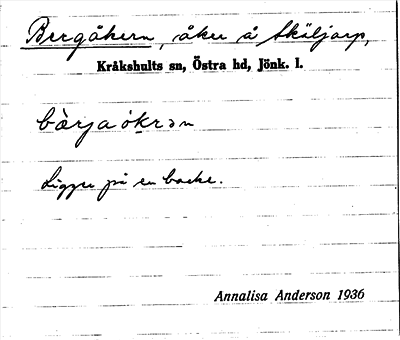 Bergåkern, åker å Skäljarp,
Kråkshults sn, Östra hd, Jönk. l.
bærjaókrən
Ligger på en backe.
Annalisa Anderson 1936